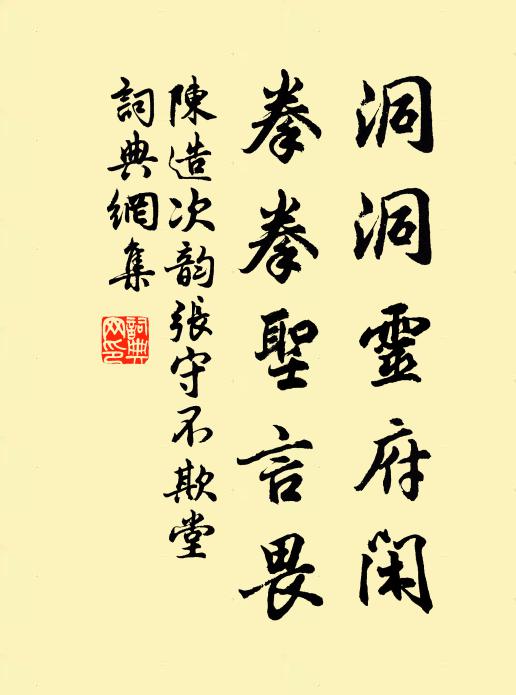 洞洞靈府閑
拳拳聖言畏
陳造次韵張守不欺堂
詞典網集
詞典網印